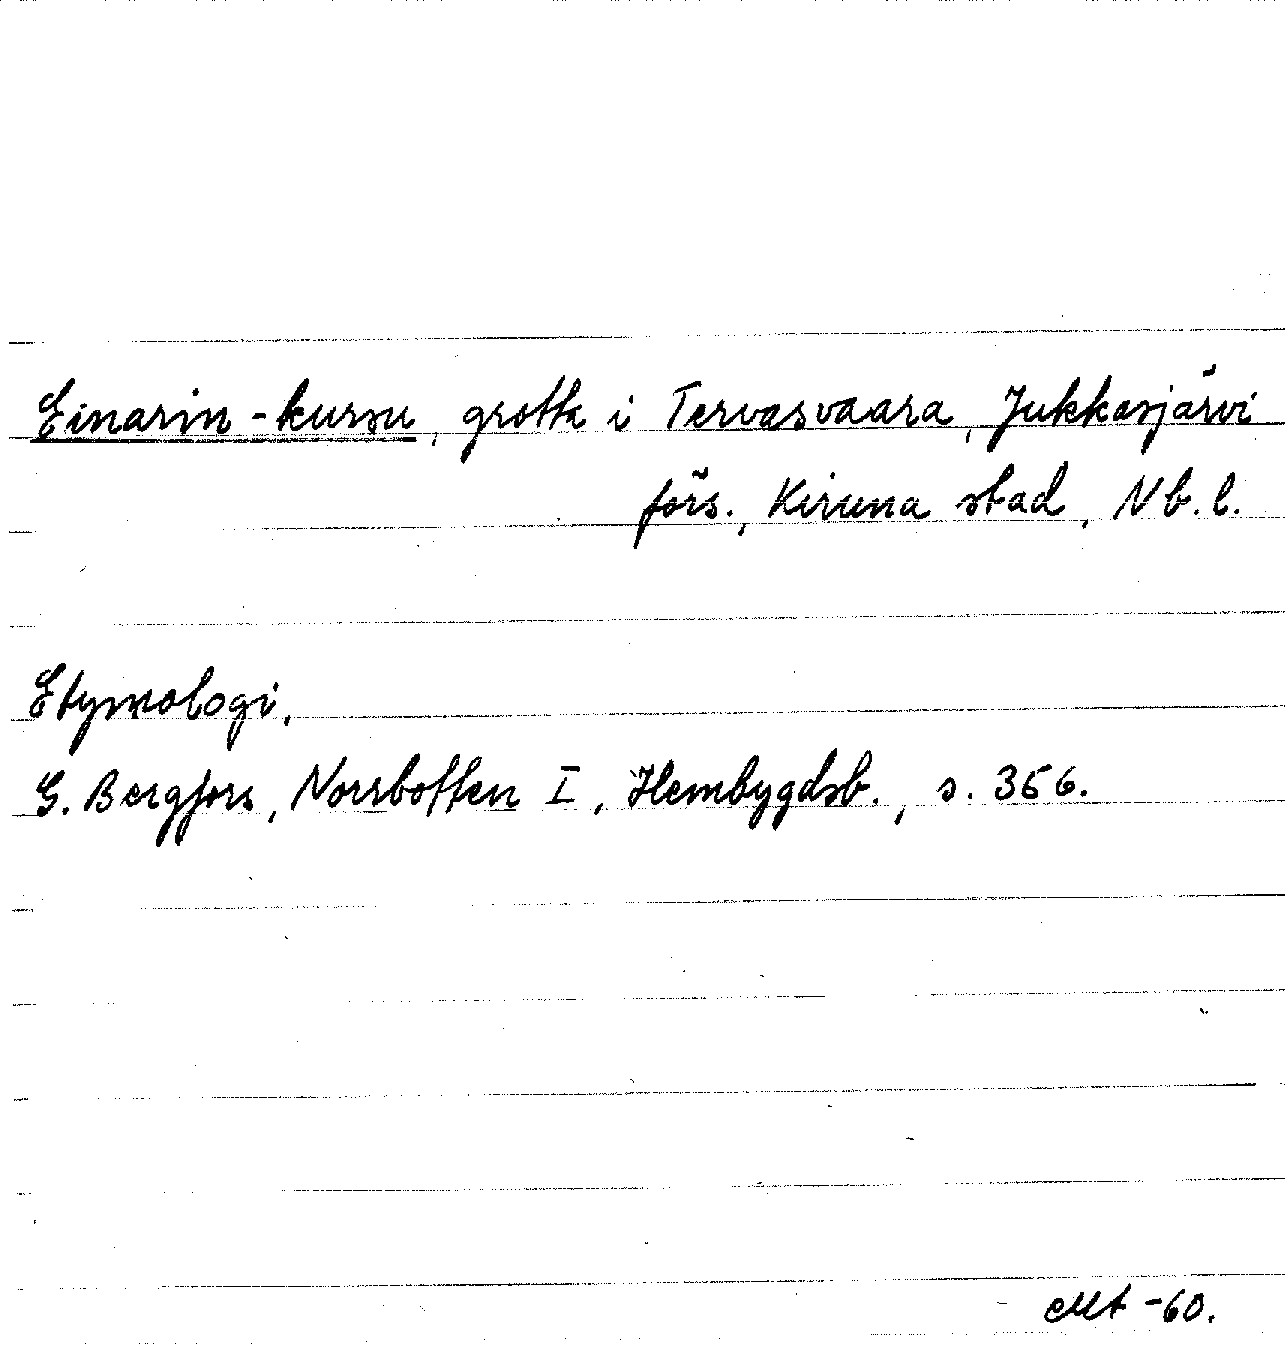 Einarin-kursu, grotta i Tervasvaara, Jukkasjärvi
förs., Kiruna stad, Nb. l.
Etymologi.
G. Bergfors, Norrbotten I, Hembygdsb., s. 356.
Mt -60.